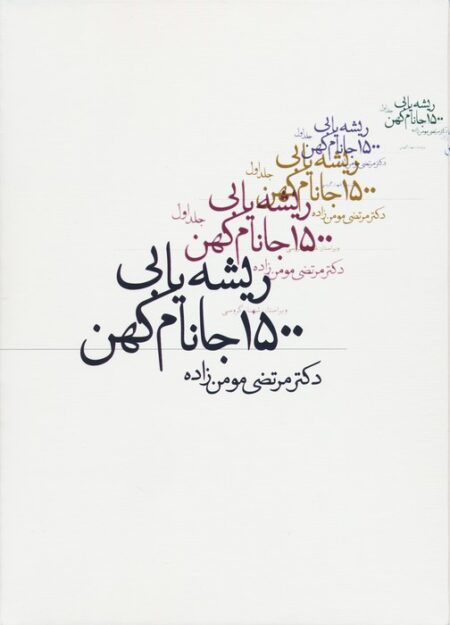 ریشه یابی
۱۵۰۰ جانام کهن
دکتر مرتضی مومن زاده
ریشه یابی
جلد اول
۱۵۰۰ جانام کهن
دکتر مرتضی مومن زاده
ریشه یابی
جلد اول
۱۵۰۰ جانام کهن
دکتر مرتضی مومن زاده
ریشه یابی
جلد اول
۱۵۰۰ جانام کهن
دکتر مرتضی
ریشه یابی
جلد اول
۱۵۰۰ جانام کهن
دکتر مرتضی مومن زاده